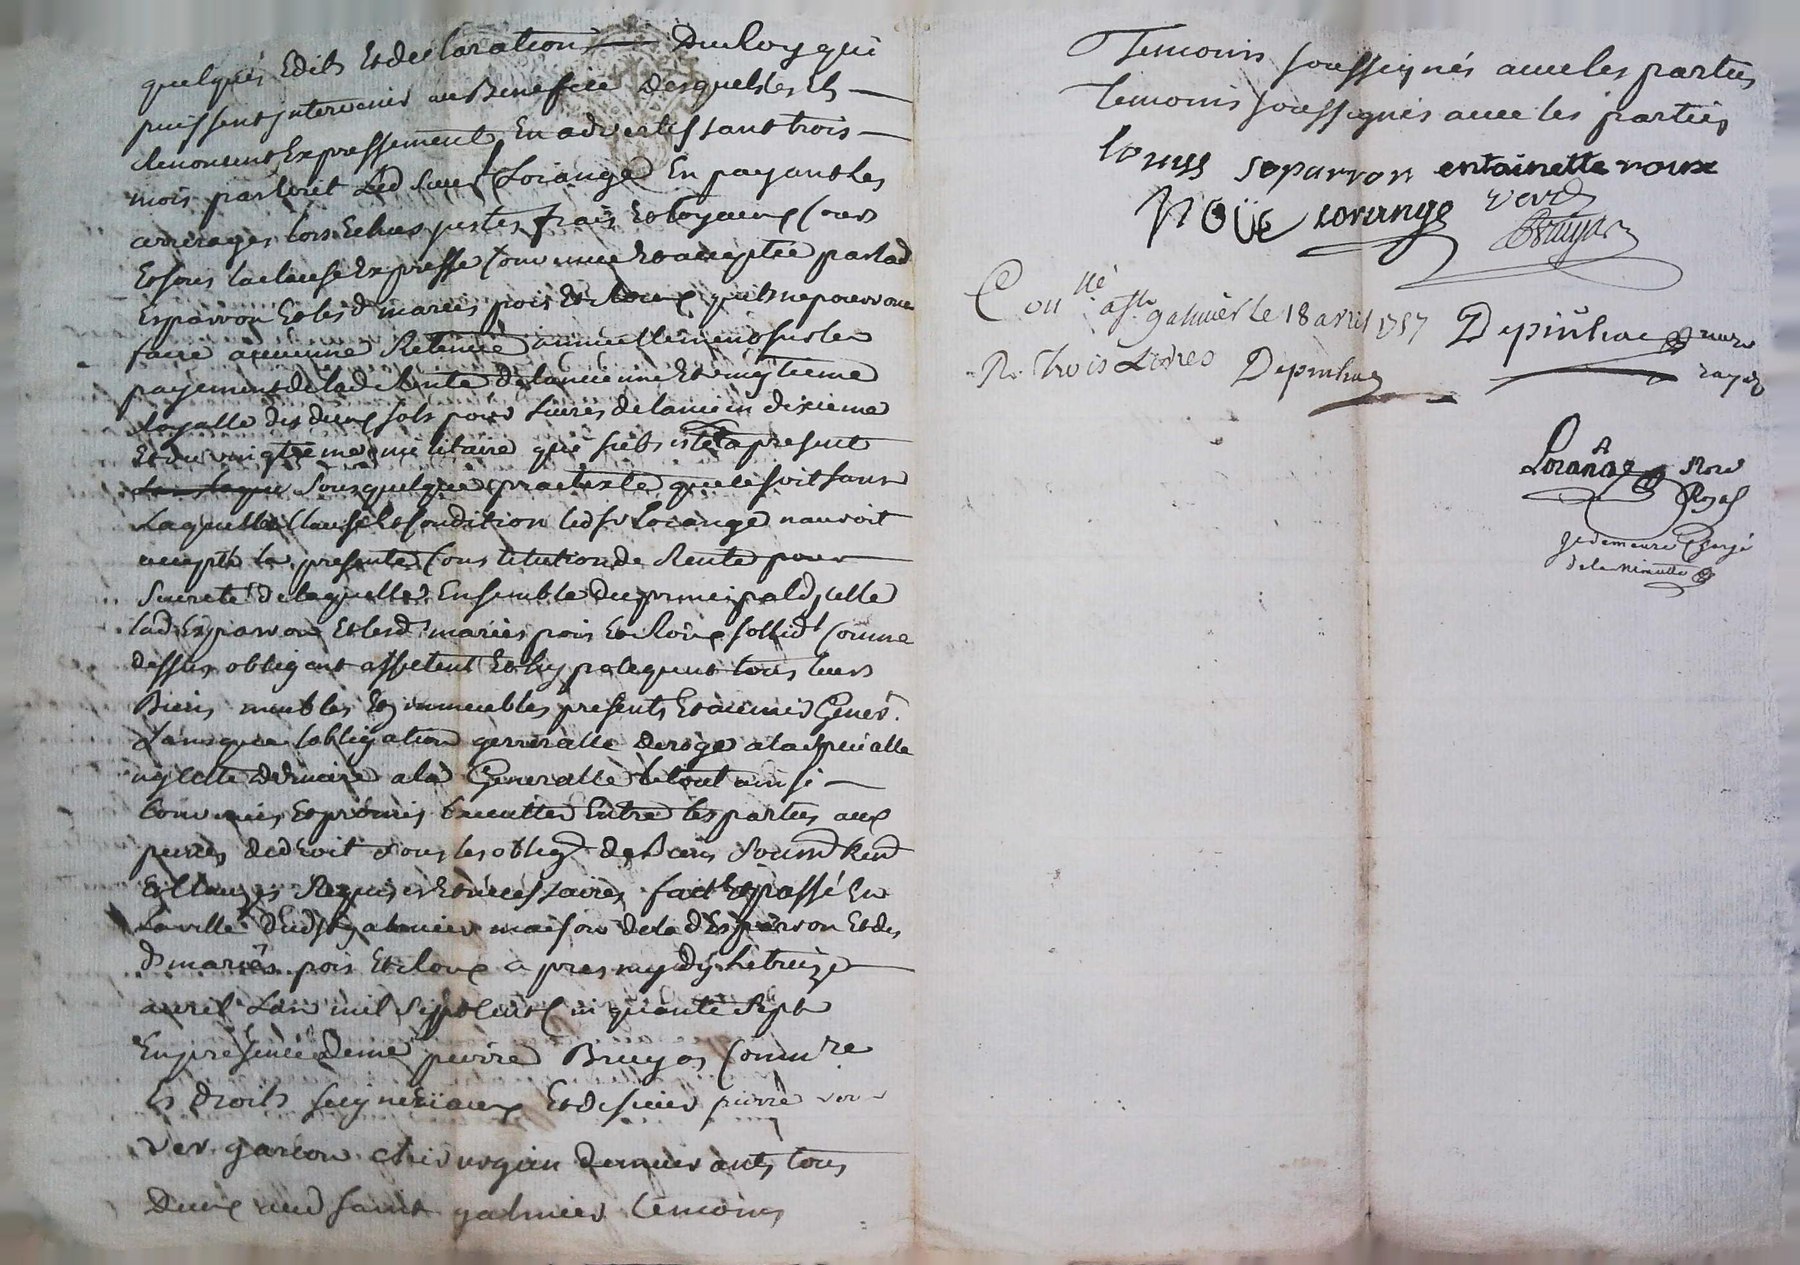 quelques Edits Et declaration Du Roy qui
puissent intervenir au Benefice desquels les Ets
Renoncent Expressement En advertissant trois
mois par Ecrit Led Sieur Lorange En payant les
arrerages lors Echus justes frais Et loyaux Couts
Et sous la clause Expresse Convenue Et acceptée par lad
Esparron Et les d mariés pois Et Roux quils ne pourront
faire aucune Retenue annuellement sur le
payement de la de Rente de lancienne Et vingtieme
Royalle des deux sols pour livres de lancien dixieme
Et du vingtieme militaire qui subsiste a present
Sous quelque pretexte que ce soit sans
Laquelle Clause Et Condition led Sr Lorange nauroit
accepté la presente Constitution de Rente pour
Sureté de laquelle Ensemble du principal dicelle
lad Esparron Et lesd mariés pois Et Roux sollidt Comme
dessus obligent affectent Et hypotequent tous leurs
Biens meubles Et immeubles presents Et avenir Gener.
Sans que lobligation generalle deroge a la specialle
ny cette derniere a la Generalle le tout ainsi
Convenu Et promis Executter Entre les parties aux
peines de droit sous les oblig de Biens Soumd Rend
Et Clauses Requises Et necessaires fait Et passé En
La ville dud St galmier maison de lad Esparron Et des
d mariés pois Et Roux apres mydy le treize
avril Lan mil Sept Cent Cinquante Sept
En presence de me pierre Bruyas Commre
Es droits seigneuriaux Et de sieur pierre
ver garcon chirurgien demeurants tous
Deux aud saint galmier temoins
Temoins soussignés avec les parties
temoins soussignés avec les parties
separron entoinette roux
NOUE lorange verd
Bruyas
Conllé a St galmier le 18 avril 1757 Depinhac
R. Trois Livres Depinhac
rayé
Lorange Nore
Royal
je demeure Chargé
de la minutte